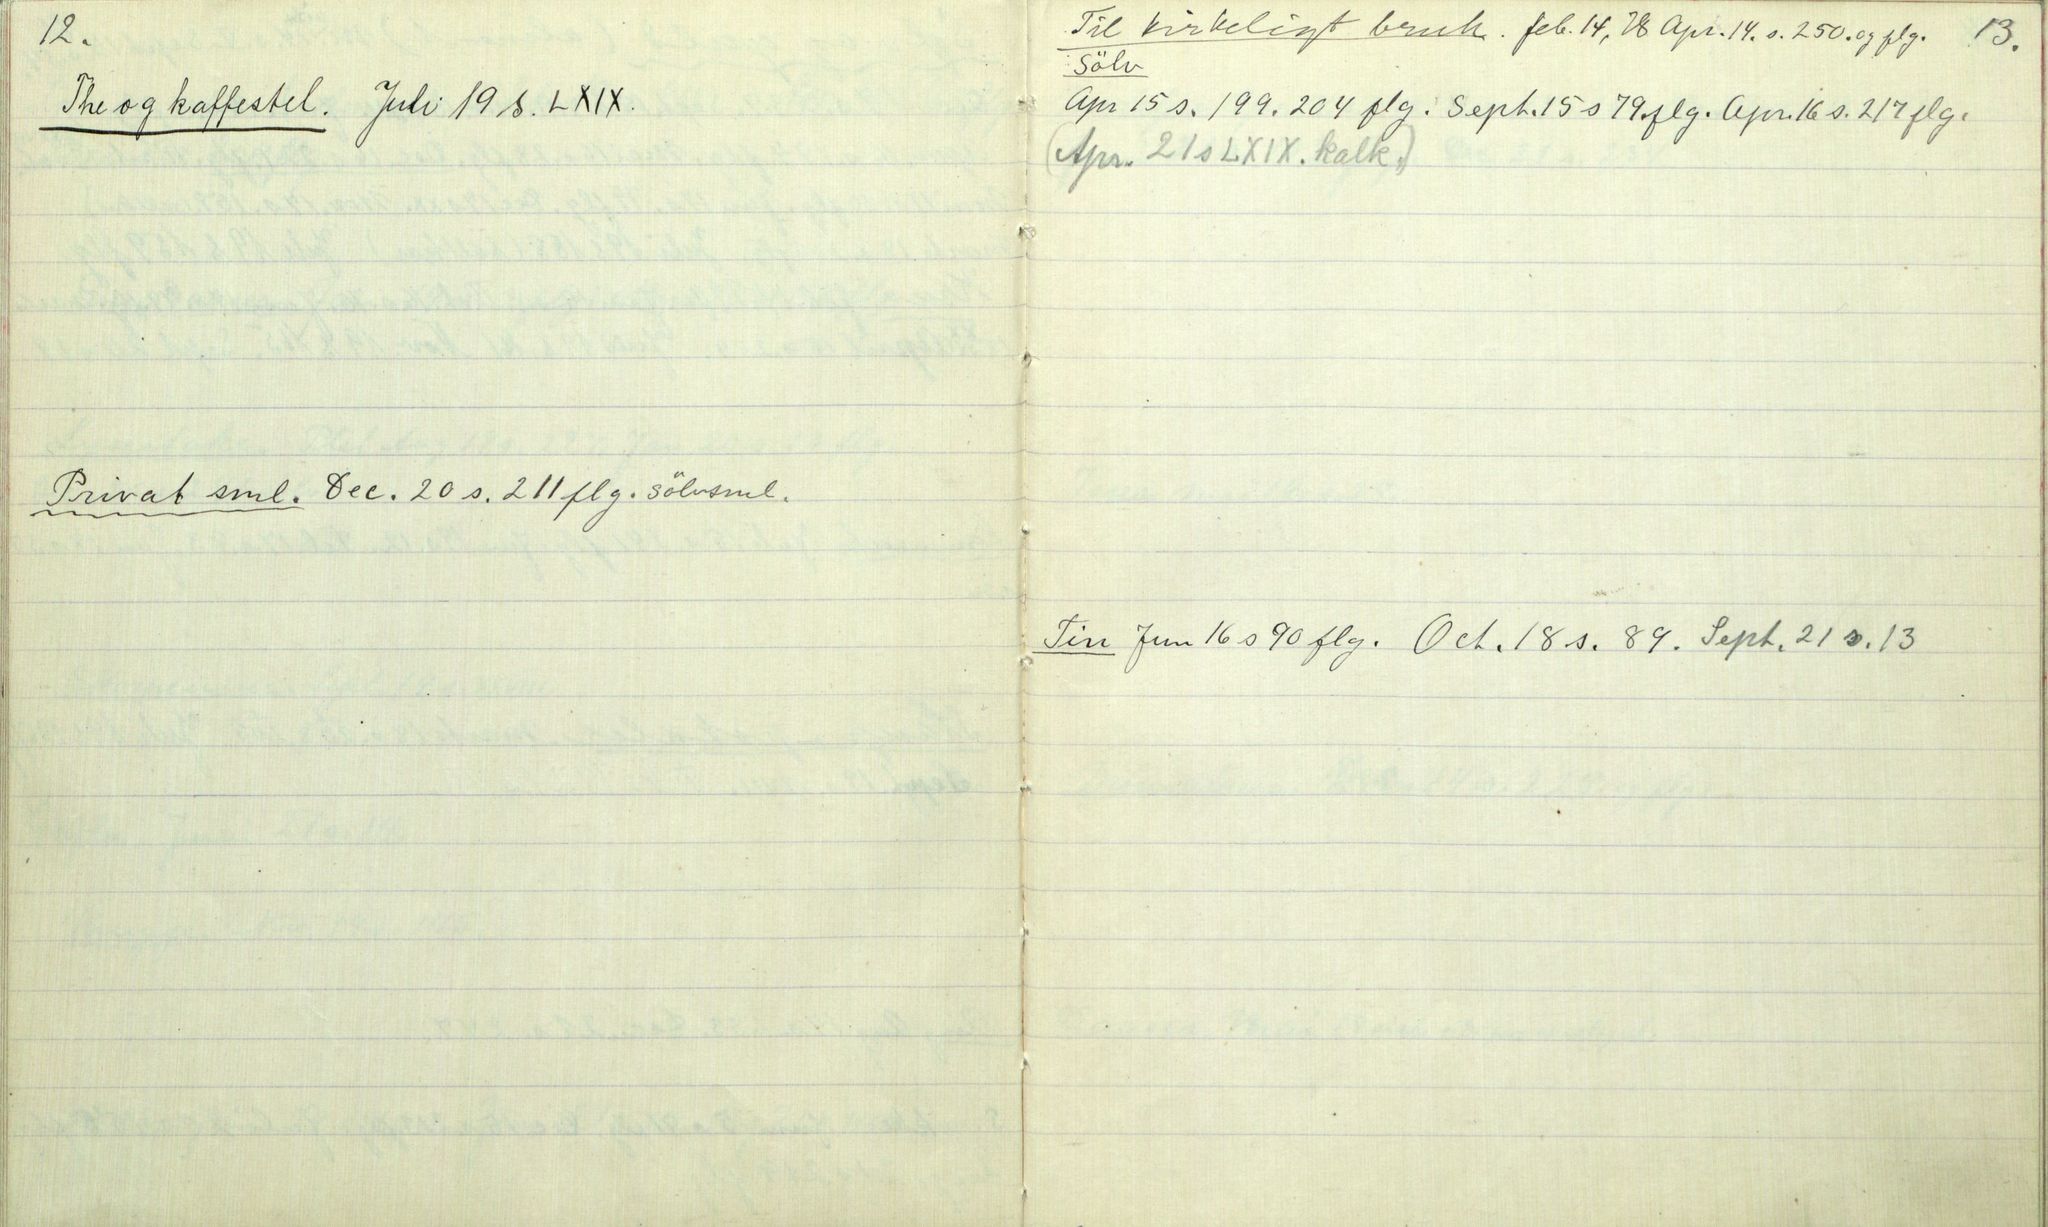 12.
The og kaffestel. Juli 19 s. LXIX.
Privat sml. Dec. 20 s. 211 flg. sölvsml.
13.
Til kirkeligt bruk. feb. 14, 78 Apr. 14. s. 250. og flg.
Sölv
Apr 15 s. 199. 204 flg. Sept. 15 s 79. flg. Apr. 16 s. 217 flg.
(Apr. 21 s LXIX. kalk.)
Tin Jun 16 s 90 flg. Oct. 18 s. 89. Sept. 21 s. 13